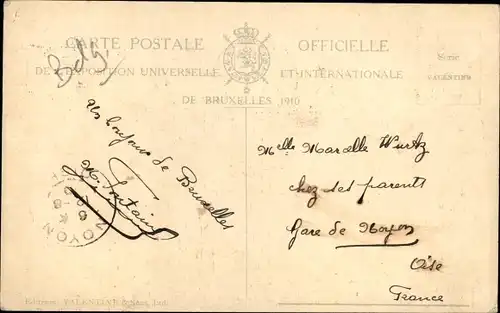 CARTE POSTALE OFFICIELLE
DE L'EXPOSITION UNIVERSELLE ET INTERNATIONALE
DE BRUXELLES 1910
Série
VALENTINE
Belg.
Un bonjour de Bruxelles
M. Fontaine
NOYON
Melle Marcelle Wurtz
chez ses parents
Gare de Noyon
Oise
France
VALENTINE